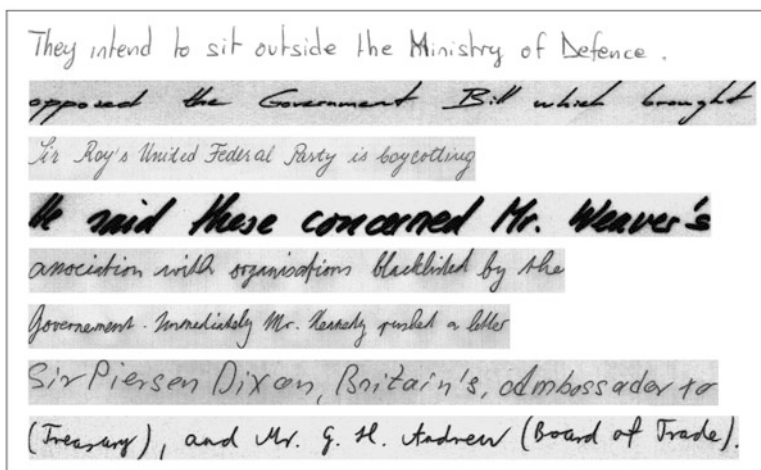 They intend to sit outside the Ministry of Defence .
opposed the Government Bill which brought
Sir Roy's United Federal Party is boycotting
He said these concerned Mr. Weaver's
association with organisations blacklisted by the
Governement . Immediately Mr. Kennedy rushed a letter
Sir Piersen Dixon, Britain's, Ambassador to
(Treasury), and Mr. G. H. Andrew (Board of Trade).